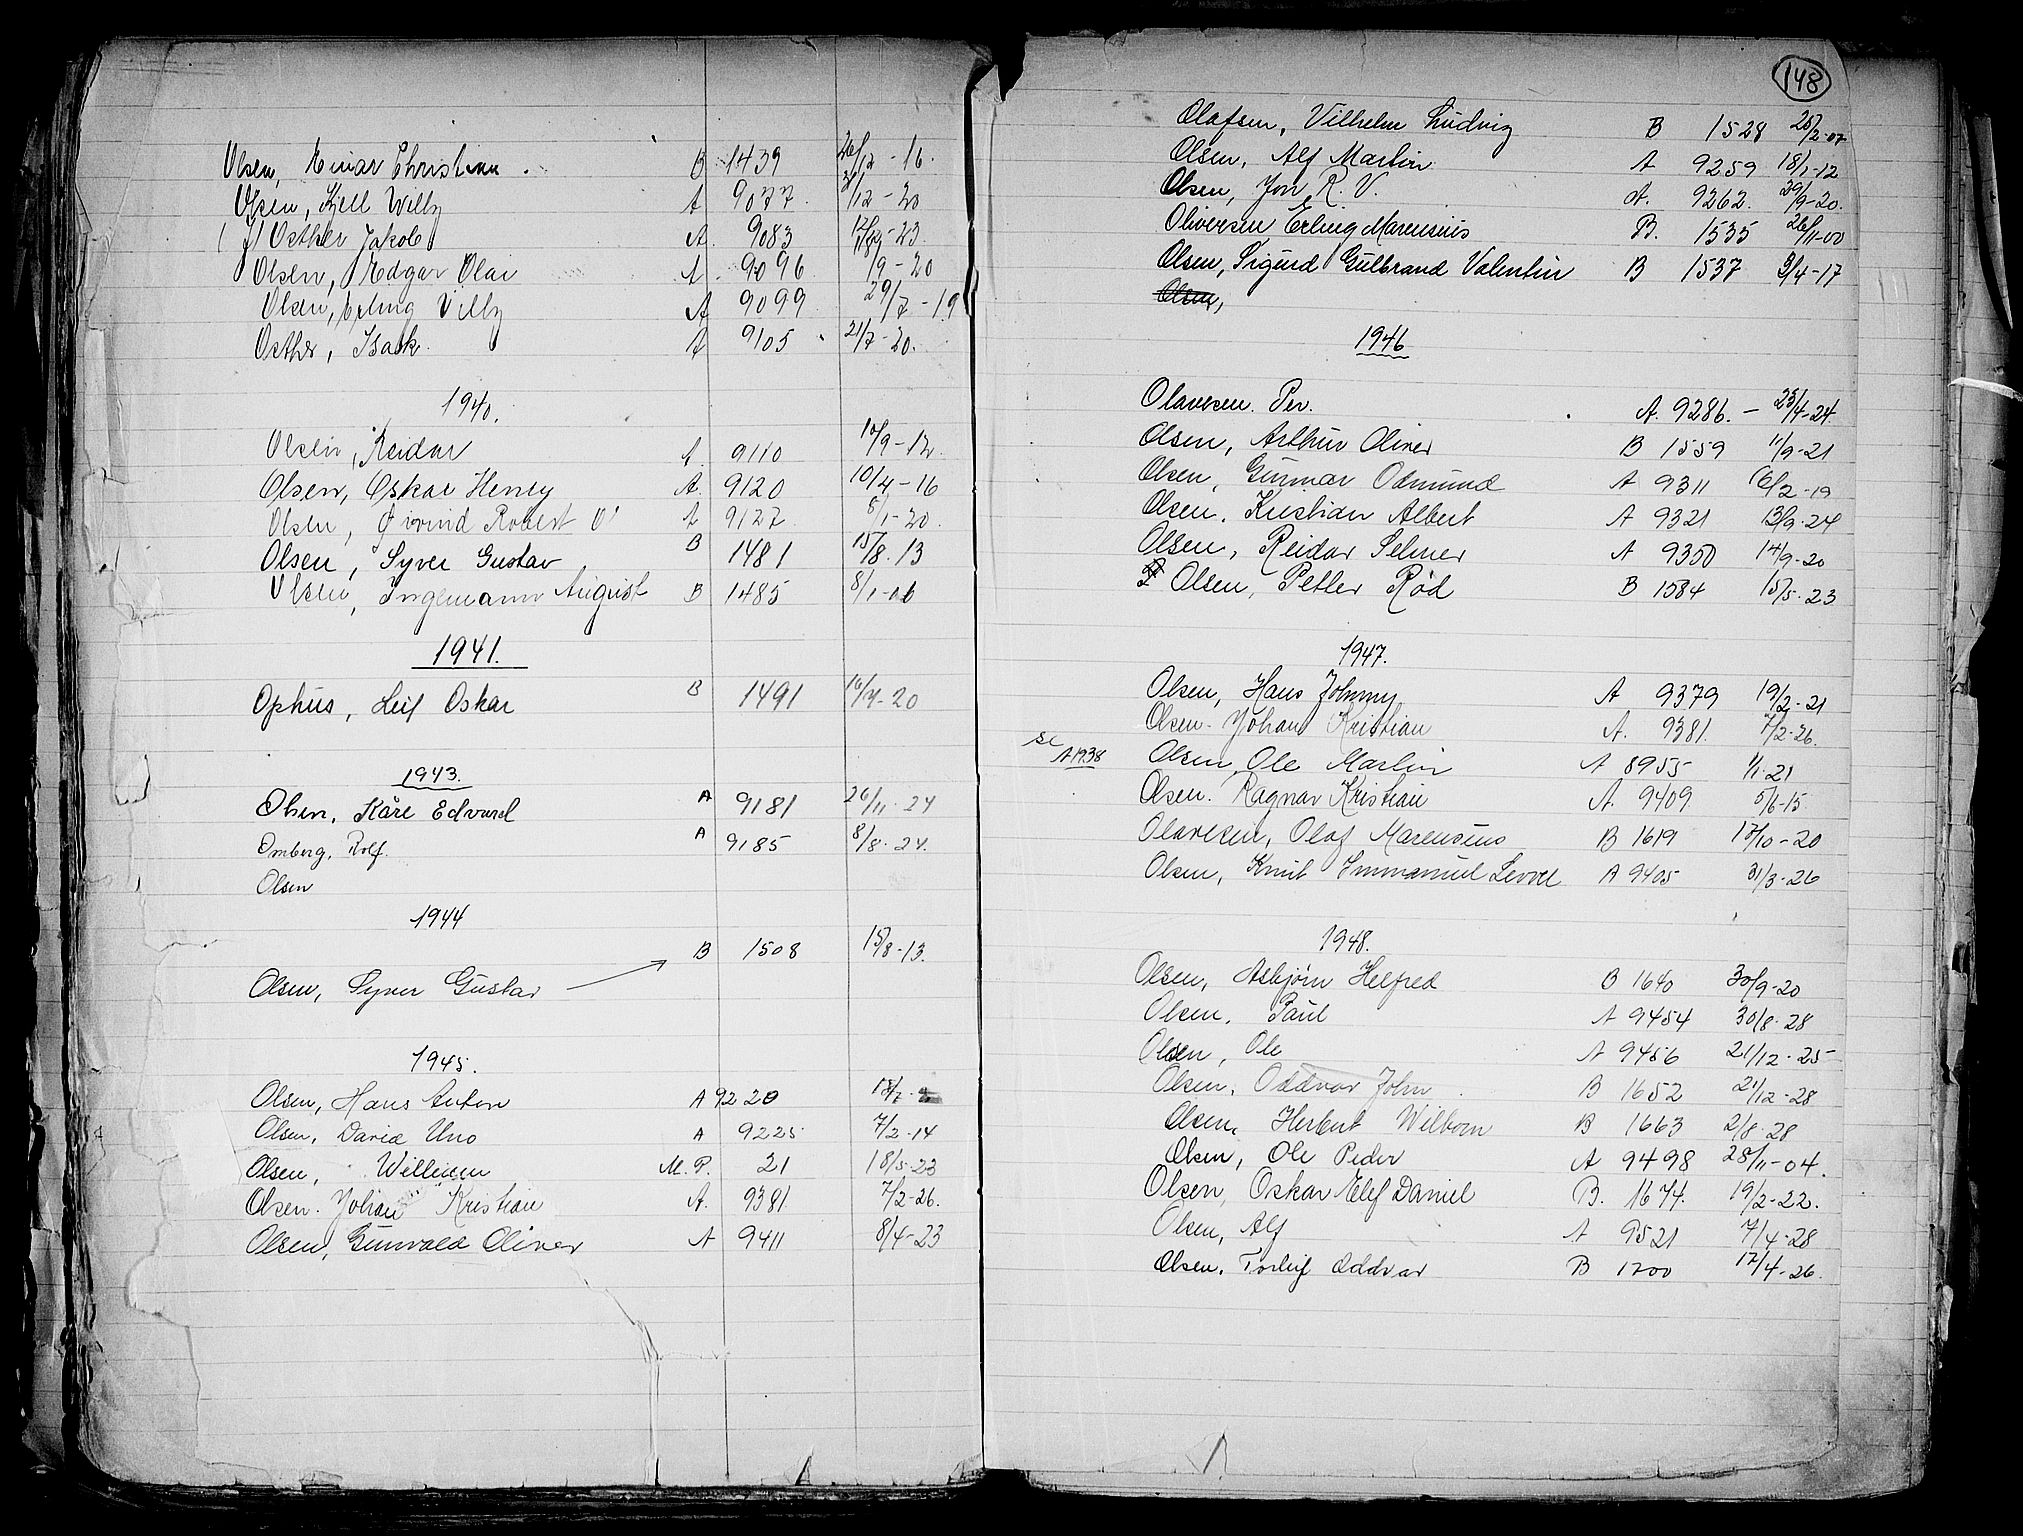 Olsen, Einar Christian B 1439 26/12 - 16.
Olsen, Kjell Willy A 9077 /12 - 20
Osther Jakob A. 9083 - 23.
Olsen, Edgar Olai A 9096 /9 - 20
Olsen, Erling Villy A 9099 29/7 - 19
Osther, Isak. A 9105 21/7 - 20.
1940.
Olsen, Reidar A 9110 10/9 - 12.
Olsen, Oskar Henry A. 9120 10/4 - 16
Olsen, Øivind Robert O' A 9127 8/1 - 20.
Olsen, Syver Gustav B 1481 15/8. 13
Olsen, Ingemann August B 1485 8/1 - 06
1941.
Ophus, Leif Oskar B 1491 16/4 - 20
1943.
Olsen, Kåre Edvard A 9181 26/11. 24
Omberg, Rolf. A 9185 8/8. 24.
Olsen
1944
B 1508 15/8 - 13.
Olsen, Syver Gustav
1945.
Olsen, Hans Anton A 9220
Olsen, David Uno A 9225 7/2 - 14
Olsen, William M. P. 21 18/5 - 23
Olsen. Johan Kristian A. 9381 7/2 - 26.
Olsen, Gunvald Oliver A 9411 8/4 - 23
148
Olafsen, Vilhelm Ludvig B 1528 /2 - 07
Olsen, Alf Martin A 9259 18/1 - 12
Olsen, Jon R. V. A. 9262. 29/9 - 20.
Oliversen Erling Marensius B. 1535 26/11 - 00
Olsen, Sigurd Gulbrand Valentin B 1537 3/4 - 17
Olsen,
1946
Olavesen. Per. A. 9286. — 23/4 - 24.
Olsen, Arthur Oliver B 1559 11/9 - 21
Olsen, Gunnar Odmund A 9311 16/2 - 19
Olsen, Kristian Albert A 9321 13/9 - 24
Olsen, Reidar Selmer A 9350 14/9 - 20
Olsen, Petter Rød B 1584 15/5. 23
1947.
Olsen, Hans Johnny A 9379 19/2. 21
Olsen. Johan Kristian A. 9381. 7/2 - 26.
se A 1938 Olsen Ole Martin A 8955 1/1 21
Olsen. Ragnar Kristian A. 9409 5/6 - 15.
Olavesen, Olaf Marensius B 1619 17/10 - 20
Olsen, Knut Emmanuel Levor A 9405 31/3 - 26
1948.
Olsen, Asbjørn Helfred B 1640 30/9 - 20
Olsen. Paul A 9454 30/8 - 28
Olsen, Ole A 9456 21/12. 25
Olsen, Oddvar John B 1652 21/12 - 28
Olsen, Herbert Wilborn B 1663 2/8. 28
Olsen, Ole Peder A 9498 28/11 - 04.
Olsen, Oskar Elef Daniel B. 1674. 19/2 - 22.
Olsen, Alf A 9521 7/4 - 28
Olsen. Torleif Oddvar B 1700 17/4 - 26.